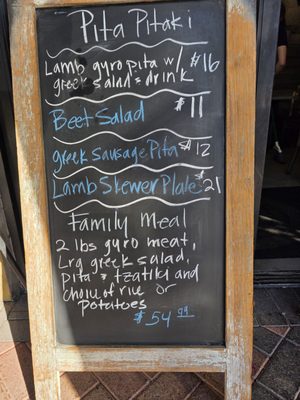 Pita Pitaki
Lamb gyro pita w/ $16
greek salad & drink
Beet Salad $11
greek Sausage Pita $12
Lamb Skewer Plate $21
Family Meal
2 lbs gyro meat,
Lrg greek salad,
pita & tzatiki and
choice of rice or
potatoes
$54.99